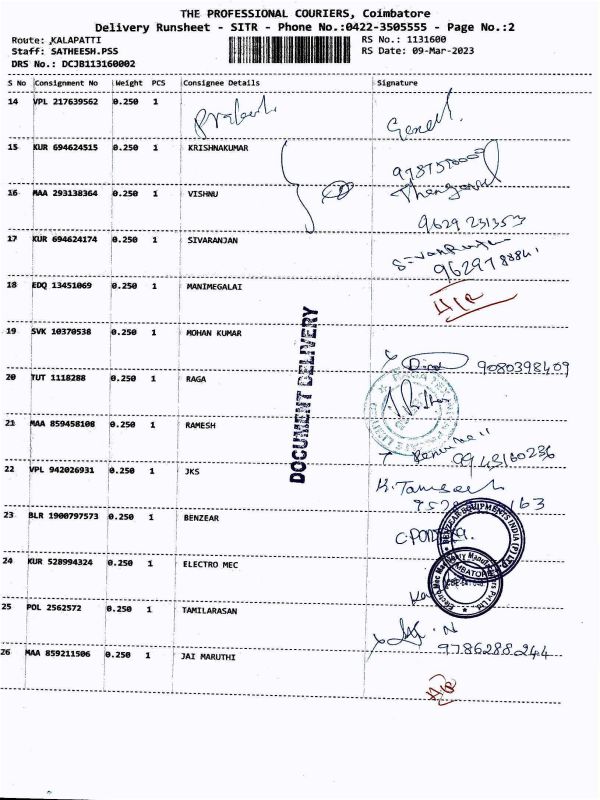 THE PROFESSIONAL COURIERS, Coimbatore
Delivery Runsheet - SITR - Phone No.:0422-3505555 - Page No.:2
Route: KALAPATTI RS No.: 1131600
Staff: SATHEESH.PSS RS Date: 09-Mar-2023
DRS No.: DCJB113160002
S No Consignment No Weight PCS Consignee Details Signature
14 VPL 217639562 0.250 1
15 KUR 694624515 0.250 1 KRISHNAKUMAR
16 MAA 293138364 0.250 1 VISHNU
9629 231353
17 KUR 694624174 0.250 1 SIVARANJAN
18 EDQ 13451069 0.250 1 MANIMEGALAI
19 SVK 10370538 0.250 1 MOHAN KUMAR
DOCUMENT DELIVERY
9080398409
20 TUT 1118288 0.250 1 RAGA
21 MAA 859458108 0.250 1 RAMESH
22 VPL 942026931 0.250 1 JKS
23 BLR 1900797573 0.250 1 BENZEAR
BENZEAR EQUIPMENTS INDIA (P) LTD
24 KUR 528994324 0.250 1 ELECTRO MEC
25 POL 2562572 0.250 1 TAMILARASAN
9786288244
26 MAA 859211506 0.250 1 JAI MARUTHI